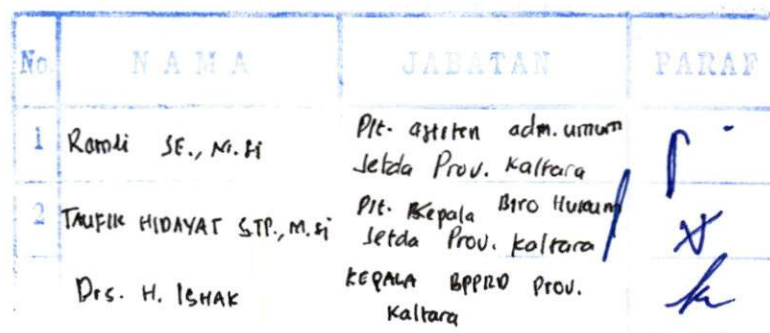 No. NAMA JABATAN PARAF
1 Ramli SE., M.Si Plt. asisten adm. umum
Setda Prov. Kaltara
2 TAUFIK HIDAYAT STP., M.Si Plt. Kepala Biro Hukum
Setda Prov. Kaltara
Drs. H. ISHAK KEPALA BPPRD Prov.
Kaltara